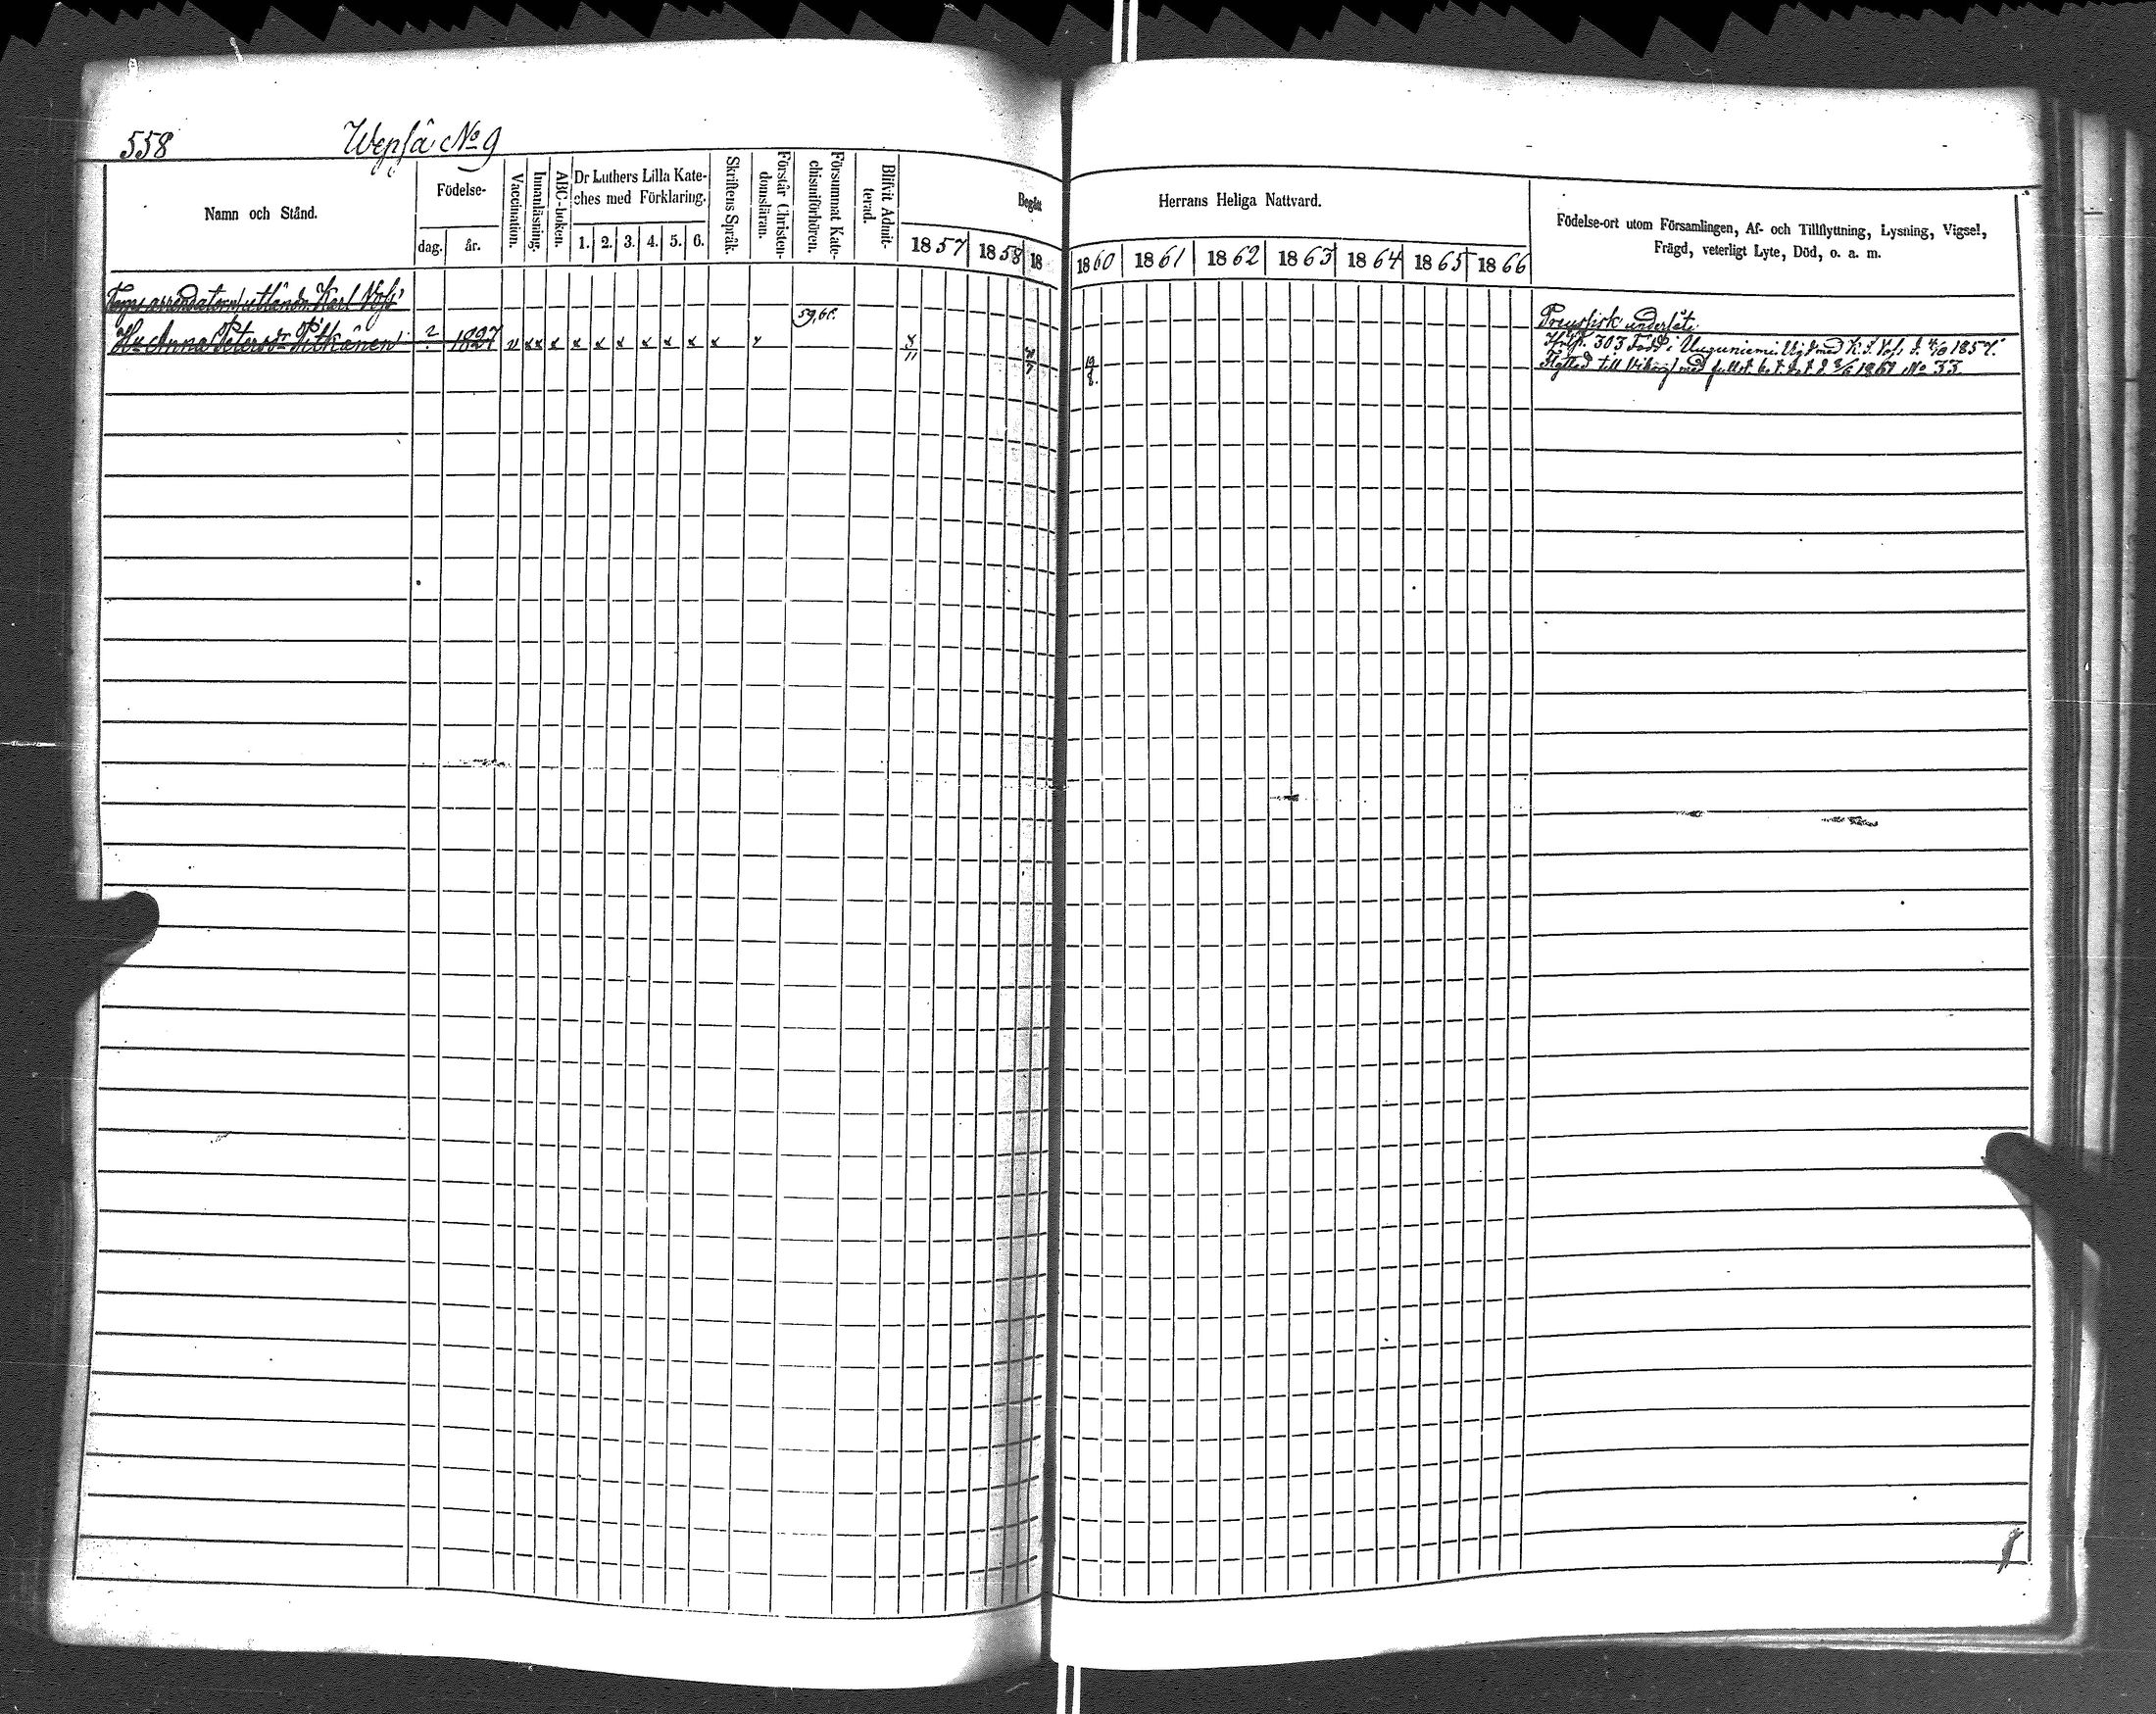 558 Wepsä No 9
Namn och Stånd.
Födelse-
dag. år.
Vaccination.
Innanläsning.
ABC-boken.
Dr Luthers Lilla Kate-
ches med Förklaring.
1. 2. 3. 4. 5. 6.
Skriftens Språk.
Förstår Christen-
domsläran.
Försummat Kate-
chismiförhören.
Blifvit Admit-
terad.
Begått Herrans Heliga Nattvard.
1857 1858 18 1860 1861 1862 1863 1864 1865 1866
Födelse-ort utom Församlingen, Af- och Tillflyttning, Lysning, Vigsel,
Frägd, veterligt Lyte, Död, o. a. m.
arrendatorn utländn Karl Voss
59,60. Preussisk undersåte
Hu Anna Petersdr Pitkänen ? 1827 v x x x x x x x x x x x
8/11 19/8.
303 Född i Uguniemi. Vigd med K. J. Voss d. 1857.
Flyttad till Viborg med 1861 No 33.